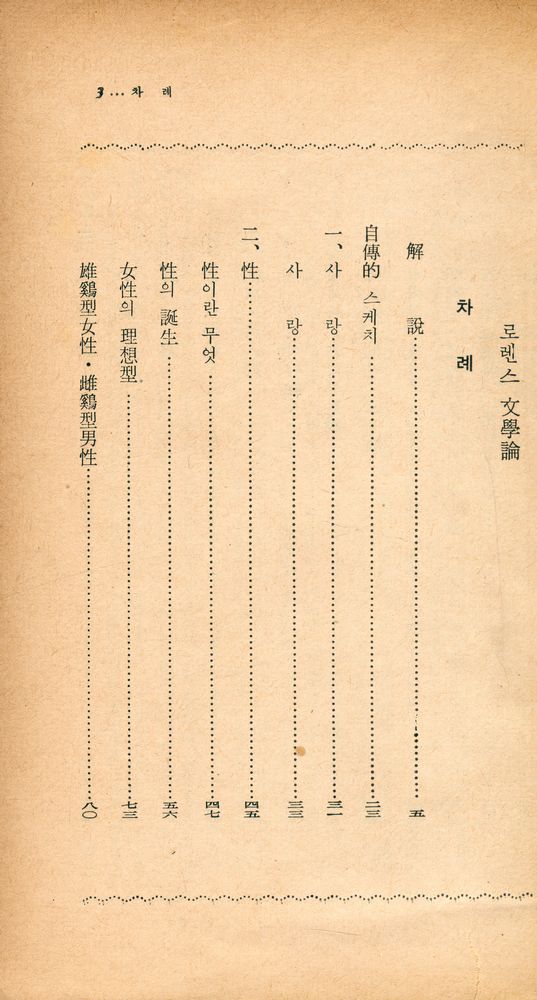 3 … 차 례
로렌스 文學論
차 례
解 說……五
自傳的 스케치……二三
一、사 랑……三一
사 랑……三三
二、性……四五
性이란 무엇……四七
性의 誕生……五六
女性의 理想型……七三
雄鷄型女性・雌鷄型男性……八〇